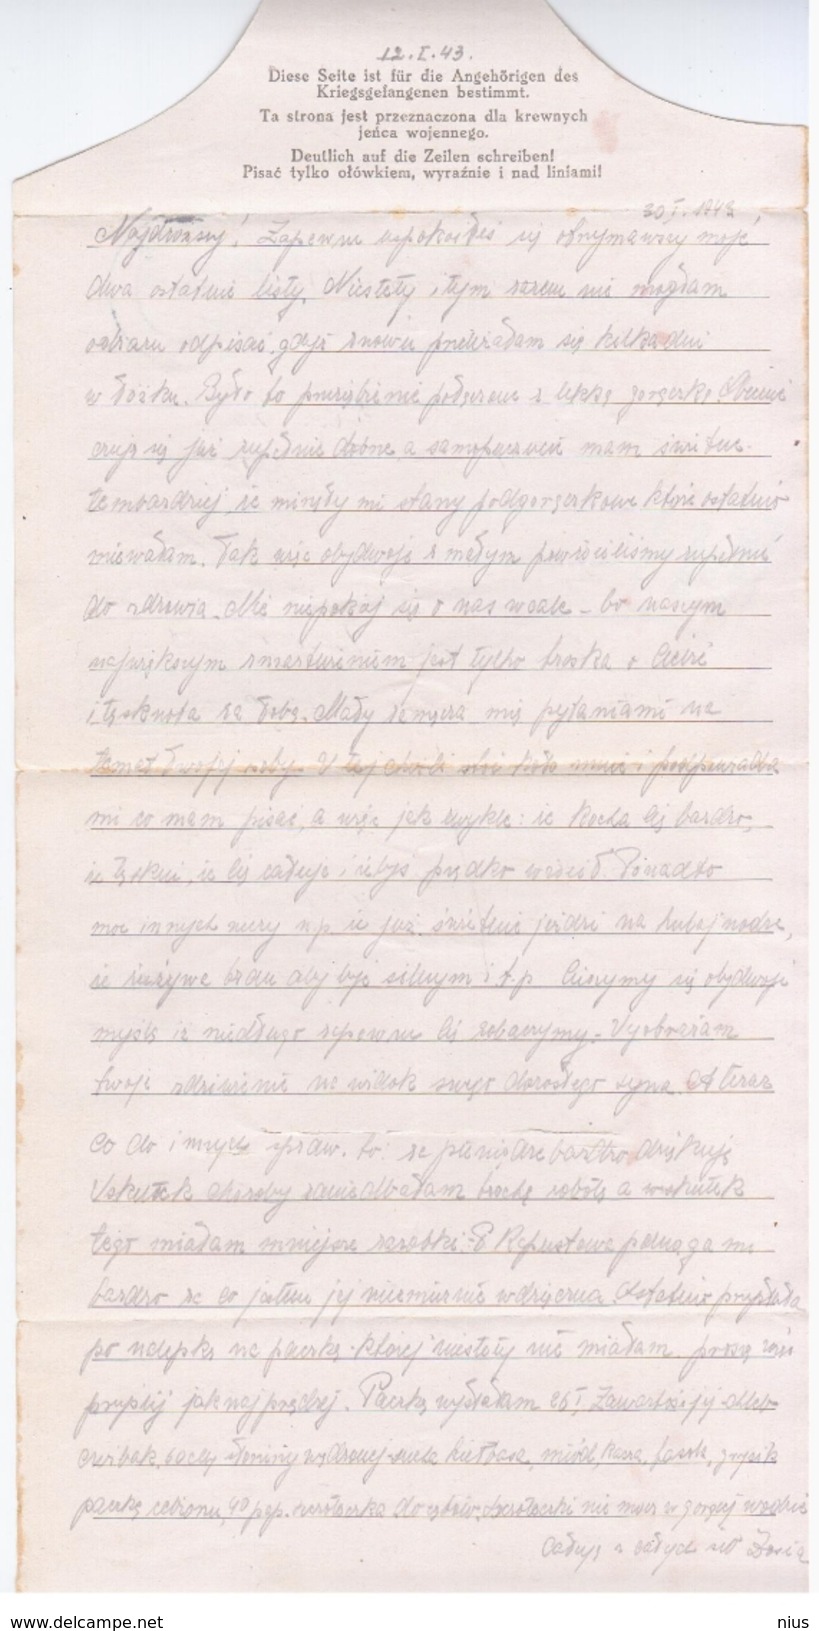 12.I.43.
Diese Seite ist für die Angehörigen des
Kriegsgefangenen bestimmt.
Ta strona jest przeznaczona dla krewnych
jeńca wojennego.
Deutlich auf die Zeilen schreiben!
Pisać tylko ołówkiem, wyraźnie i nad liniami!
30 I. 1943
Najdroższy! Zapewne uspokoiłeś się otrzymawszy moje
dwa ostatnie listy. Niestety i tym razem nie mogłam
odrazu odpisać, gdyż znowu przeleżałam się kilka dni
w łóżku. Było to przeziębienie połączone z lekką gorączką. Obecnie
czuję się już zupełnie dobrze, a samopoczucie mam świetne.
tembardziej, że minęły mi stany podgorączkowe, które ostatnio
miewałam. Tak więc obydwoje z małym powróciliśmy zupełnie
do zdrowia. Nie niepokój się o nas wcale – bo naszym
największym zmartwieniem jest tylko troska o Ciebie
i tęsknota za Tobą. Mały zamęcza mię pytaniami na
temat Twojej osoby. W tej chwili stoi koło mnie i podpowiada
mi co mam pisać, a więc jak zwykle: że kocha Cię bardzo,
że tęskni, że Cię całuje i żebyś prędko wrócił. Ponadto
moc innych rzeczy np. że już świetnie jeździ na hulajnodze,
że zażywa tran aby być silnym i t.p. Cieszymy się obydwoje
myślą że niedługo zapewne Cię zobaczymy. Wyobrażam
twoje zdziwienie na widok swego dorosłego syna. A teraz
co do innych spraw. to: za pieniądze bardzo dziękuję
Wskutek choroby zaniedbałam trochę robotę a wskutek
tego miałam mniejsze zarobki. P. pomaga mi
bardzo za co jestem jej niezmiernie wdzięczna. Ostatnio przysłała
po nalepkę na paczkę której niestety nie miałam. proszę więc
przyślij jak najprędzej. Paczkę wysłałam 26 I. Zawartość jej chleb
czerstwy, słoniny wędzonej, kiełbasa, miód, kasza, fasola, grysik
paczkę cebioną, 40 pap. szczoteczka do zębów. Szczoteczki nie mocz w gorącej wodzie
Całuję z całych sił Zosia
nius